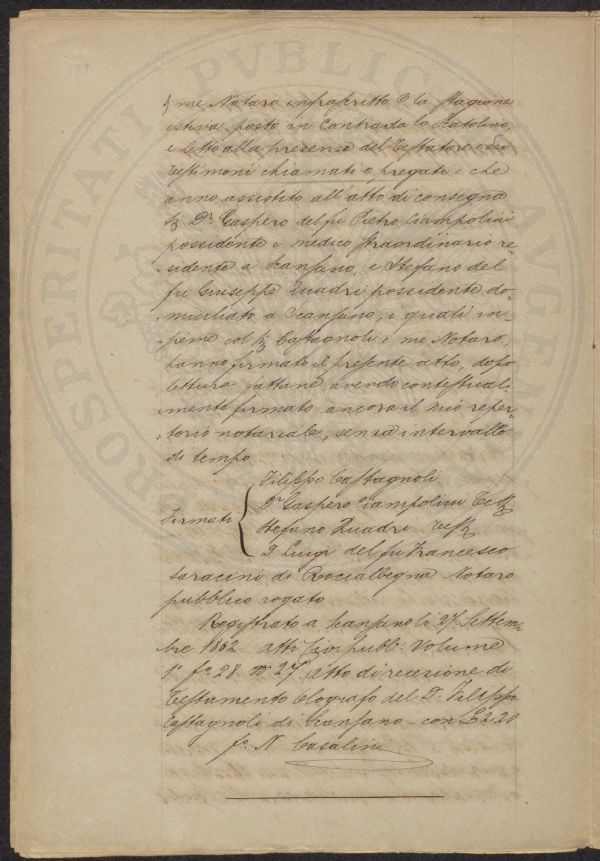 me Notaro infrascritto p. la stagione
estiva posto in Contrada lo Scatolino
e letto alla presenza del Testatore e dei
testimoni chiamati e pregati e che
anno assistito all'atto di consegna
Sig. Dr. Gaspero del fu Pietro Ciampolini
possidente e medico straordinario re-
-sidente a Scansano, e Stefano del
fu Giuseppe Quadri possidente do-
-miciliato a Scansano, i quali in-
-sieme col Sig. Castagnoli e me Notaro,
hanno firmato il presente atto, dopo
lettura fattane avendo contestual-
-mente firmato ancora il mio reper-
-torio notariale, senza intervallo
di tempo.
Filippo Castagnoli
Dr. Gaspero Ciampolini Test.
Firmati Stefano Quadri Test.
D. Luigi del fu Francesco
Saracini di Roccalbegna Notaro
pubblico rogato
Registrato a Scansano li 27 Settem-
bre 1862 atti Civ. pubb. Volume
1° fo. 28. No 27. atto di recesione di
Testamento Olografo del Dr. Filippo
Castagnoli di Scansano con £ 2-20
fo. N Casalini
PROSPERITATI PVBLICAE AVGENDAE